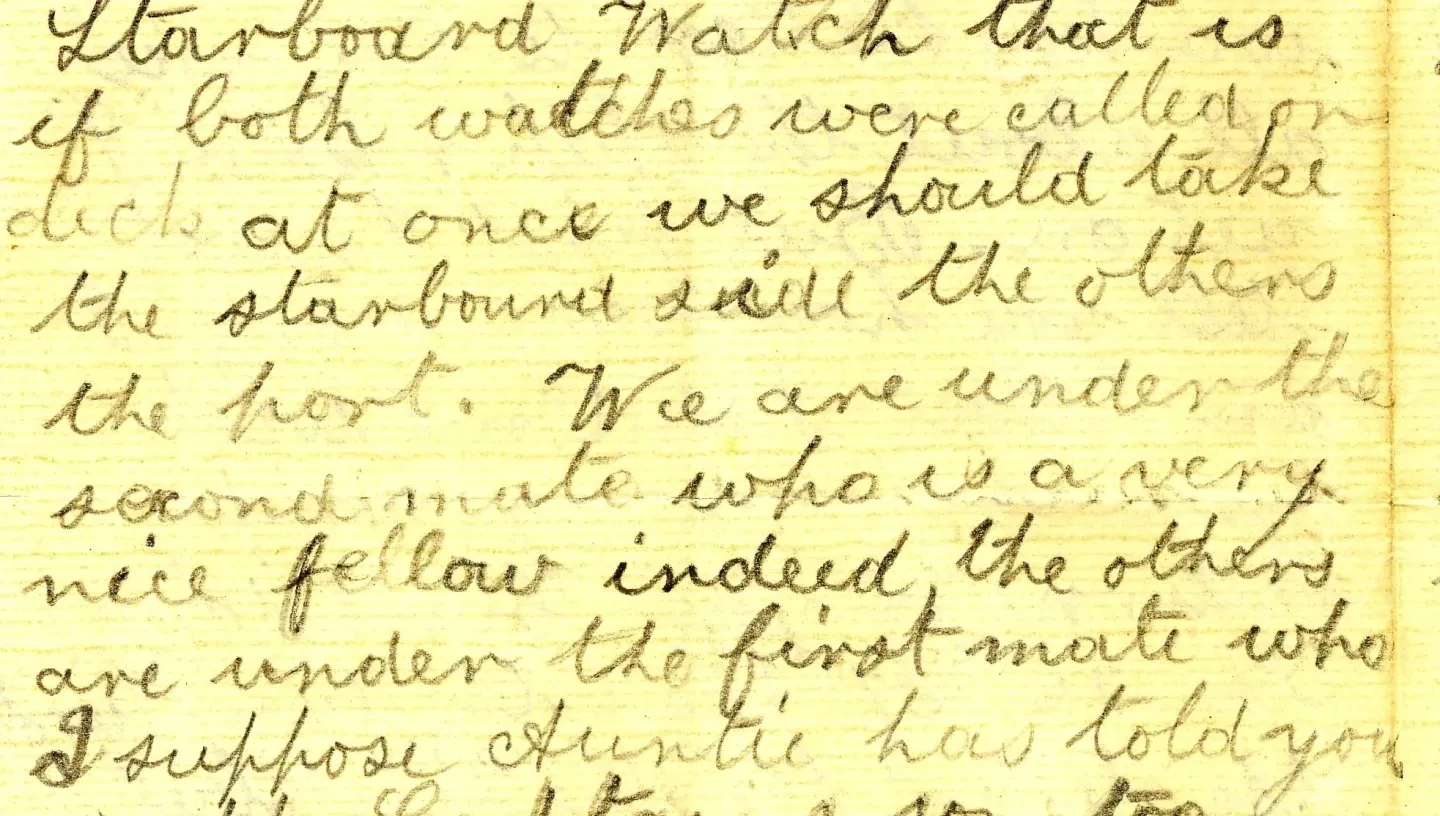 Starboard Watch that is
if both watches were called on
deck at once we should take
the starbourd side the others
the port. We are under the
second mate who is a very
nice fellow indeed, the others
are under the first mate who
I suppose Auntie has told you